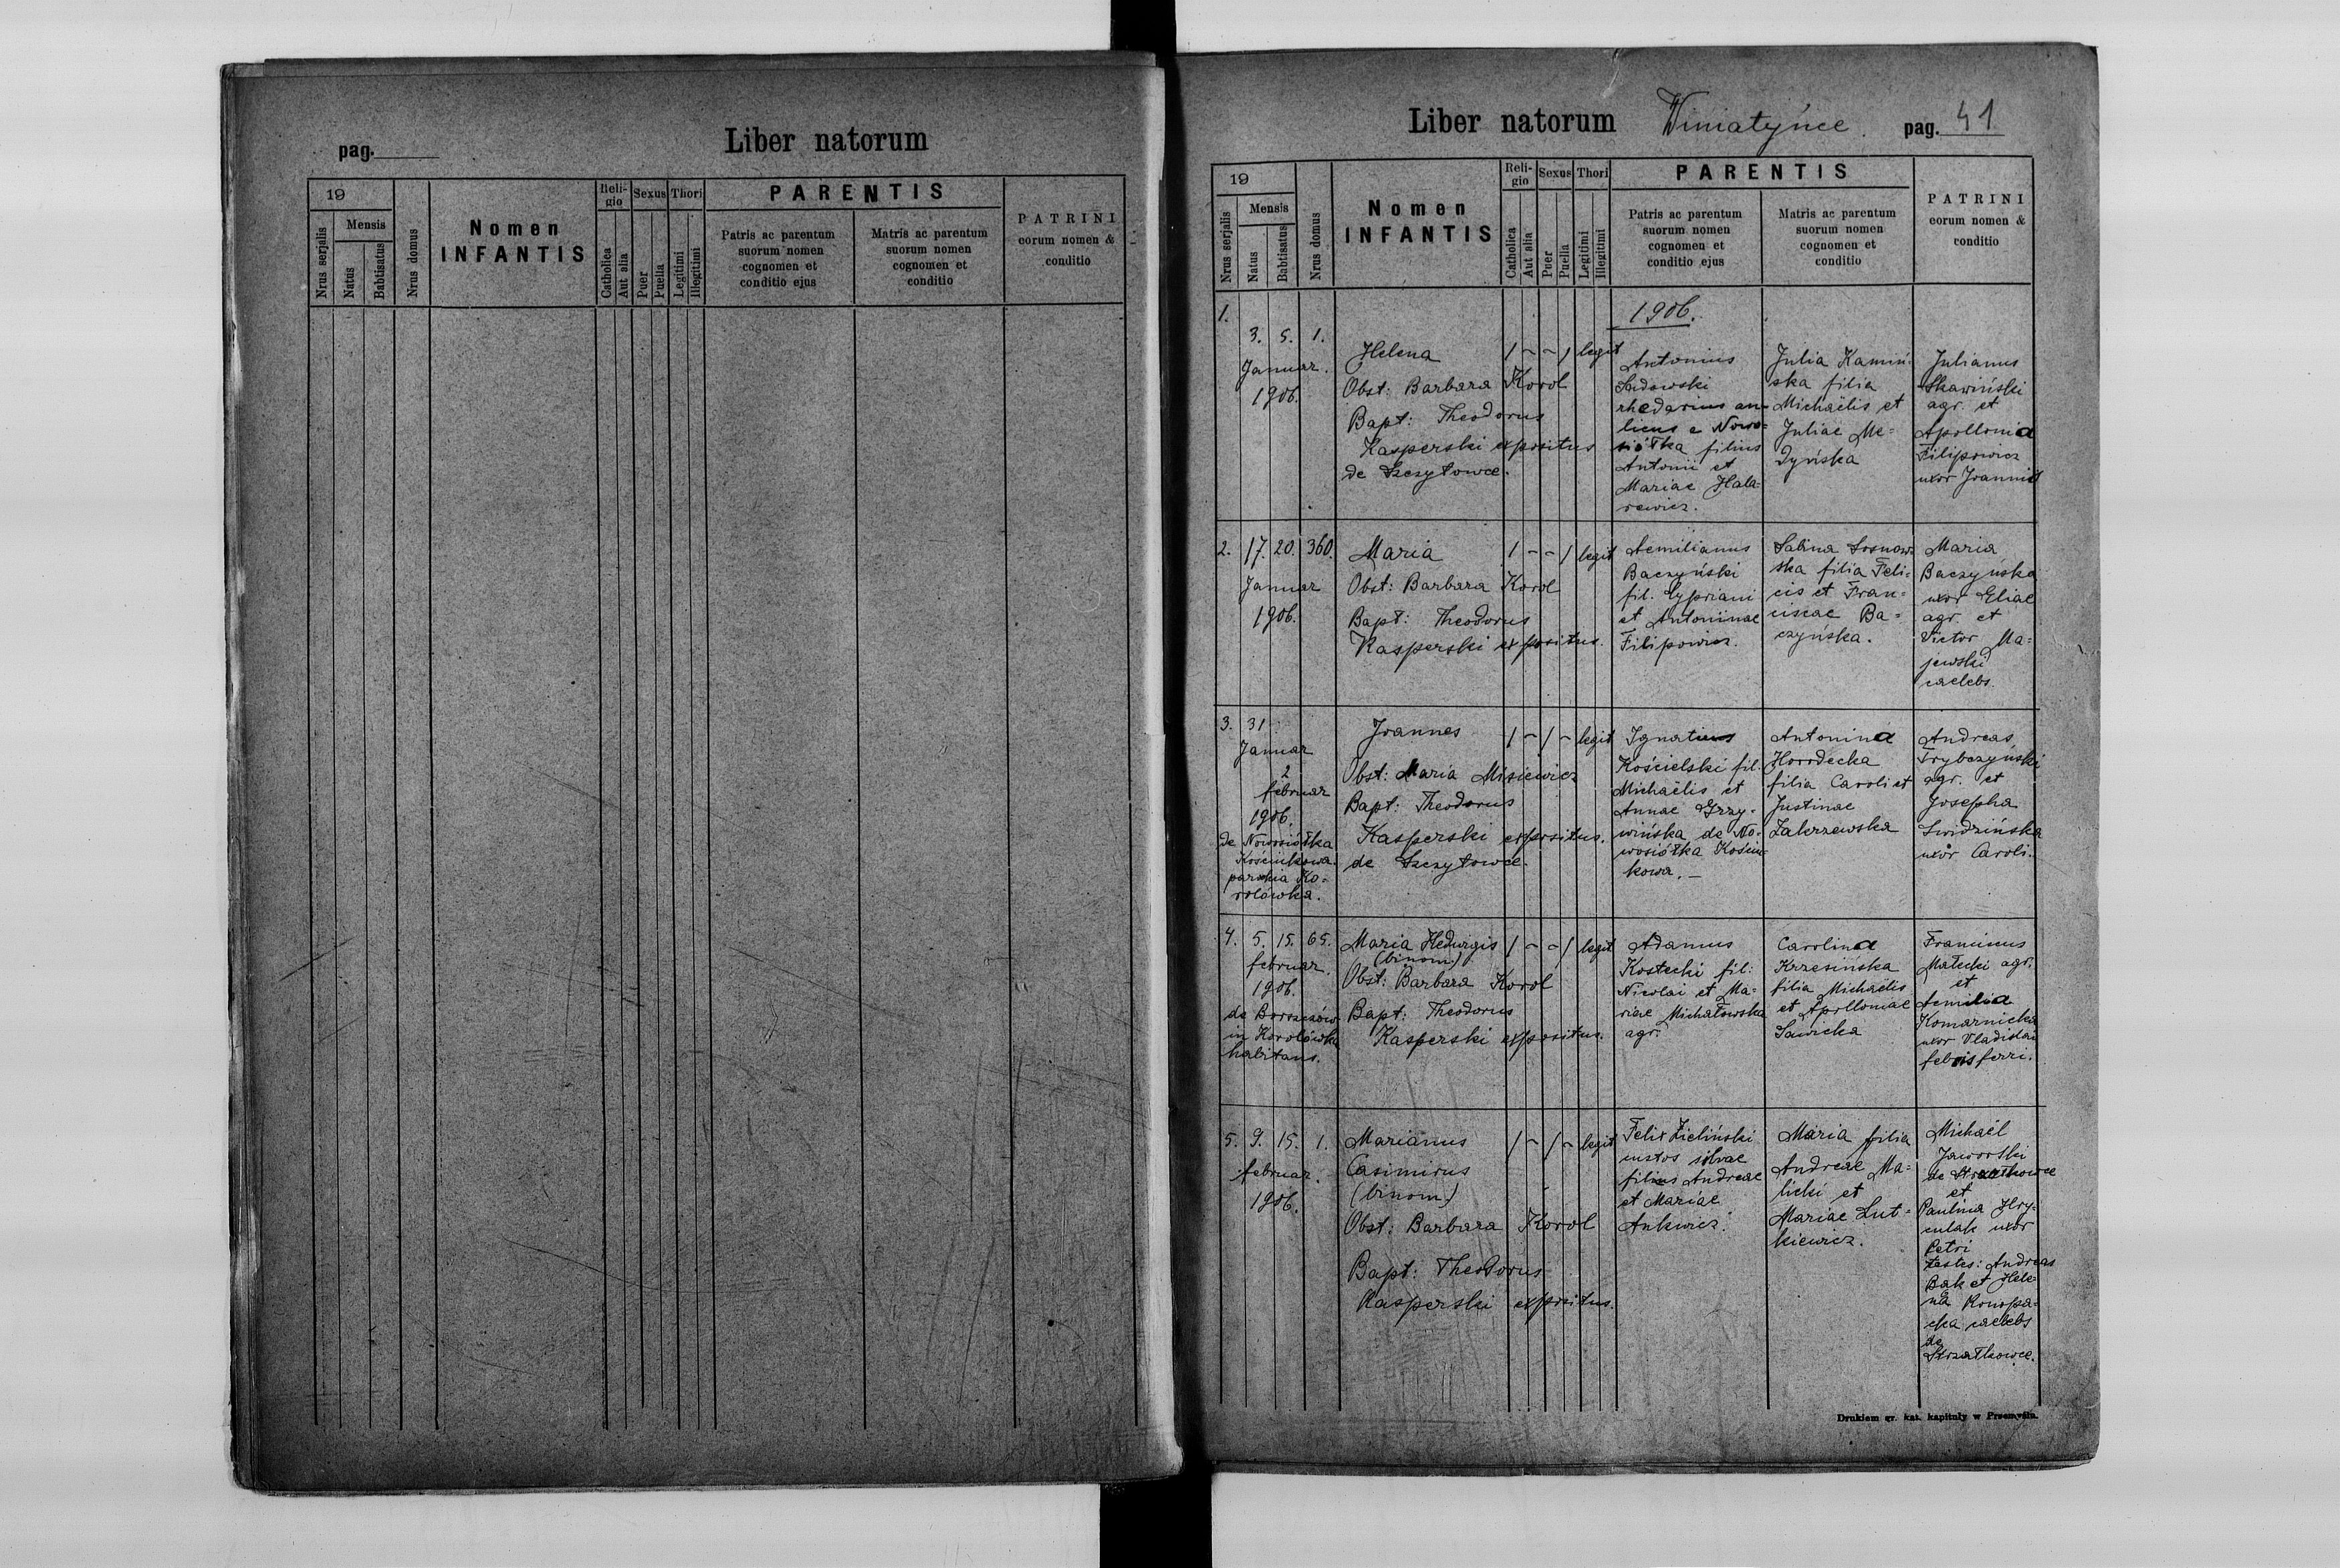 pag.
Liber natorum
19
Nrus serjalis
Mensis
Natus
Babtisatus
Nrus domus
Nomen
INFANTIS
Reli-
gio
Catholica
Aut alia
Sexus
Puer
Puella
Thori
Legitimi
Illegitimi
PARENTIS
Patris ac parentum
suorum nomen
cognomen et
conditio ejus
Matris ac parentum
suorum nomen
cognomen et
conditio
PATRINI
eorum nomen &
conditio
Liber natorum Winiatyńce.
pag. 41
19
Nrus serjalis
Mensis
Natus
Babtisatus
Nrus domus
Nomen
INFANTIS
Reli-
gio
Catholica
Aut alia
Sexus
Puer
Puella
Thori
Legitimi
Illegitimi
PARENTIS
Patris ac parentum
suorum nomen
cognomen et
conditio ejus
Matris ac parentum
suorum nomen
cognomen et
conditio
PATRINI
eorum nomen &
conditio
1906.
1.
3. 5. 1.
Januar.
1906.
Helena
Obst: Barbara Korol
Bapt: Theodorus
Kasperski expositus
de Szczytowce.
1 - - 1 legit
Antonius
Sadowski
rhedarius au-
licus e Nowo-
siółka filius
Antonii et
Mariae Hala-
rewicz.
Julia Kamiń-
ska filia
Michaëlis et
Juliae Me-
dyńska
Julianus
Skawiński
agr. et
Apollonia
Filipowicz
uxor Joannis
2. 17. 20. 360.
Januar
1906.
Maria
Obst: Barbara Korol
Bapt: Theodorus
Kasperski expositus.
1 - - 1 legit
Aemilianus
Baczyński
fil. Cypriani
et Antoninae
Filipowicz.
Sabina Sosnow-
ska filia Feli-
cis et Fran-
ciscae Ba-
czyńska.
Maria
Baczynska
uxor Eliae
agr. et
Victor Ma-
jewski
caelebs.
3. 31
Januar
2
februar
1906.
de Nowosiółka
Kościukowa
parochia Ko-
rolówka.
Joannes
Obst: Maria Misiewicz
Bapt: Theodorus
Kasperski expositus.
de Szczytowce.
1 - 1 - legit
Ignatius
Kościelski fil.
Michaëlis et
Annae Grzy-
wińska de No-
wosiółka Kościu-
kowa. -
Antonina
Horodecka
filia Caroli et
Justinae
Zakrzewska
Andreas
Trybczyński
agr. et
Josepha
Swidzińska
uxor Caroli.
4. 5. 15. 65.
februar.
1906.
de Borszczów
in Korolówka
habitans.
Maria Hedwigis
(binom.)
Obst: Barbara Korol
Bapt: Theodorus
Kasperski expositus.
1 - - 1 legit
Adamus
Kostecki fil.
Nicolai et Ma-
riae Michałowska
agr.
Carolina
Krzesińska
filia Michaëlis
et Apolloniae
Sawicka
Franciscus
Małecki agr.
et
Aemilia
Komarnicka
uxor Vladislai
ferri.
5. 9. 15. 1.
februar.
1906.
Marianus
Casimirus
(binom.)
Obst: Barbara Korol
Bapt: Theodorus
Kasperski expositus.
1 - 1 - legit
Felix Zieliński
custos silvae
filius Andreae
et Mariae
Ankwicz.
Maria filia
Andreae Ma-
licki et
Mariae Lut-
kiewicz.
Michaël
Jaworski
de
et
Paulina Hry-
culak uxor
Petri
testes: Andreas
Bąk et Hele-
na Konopa-
cka caelebs
de
Strzałkowce.
Drukiem gr. kat. kapituły w Przemyślu.